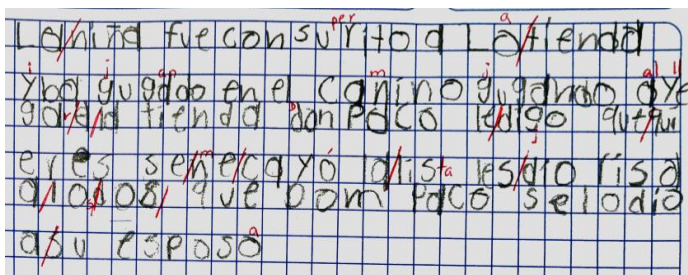 Laniña fue con su per rito a La a tienda
Yba gugado en el canino gugando aye
garela tienda don Paco ledigo qutqui
eres senecayó lalista lesdio risa
alodos que Dom Paco selodio
asu esposo a